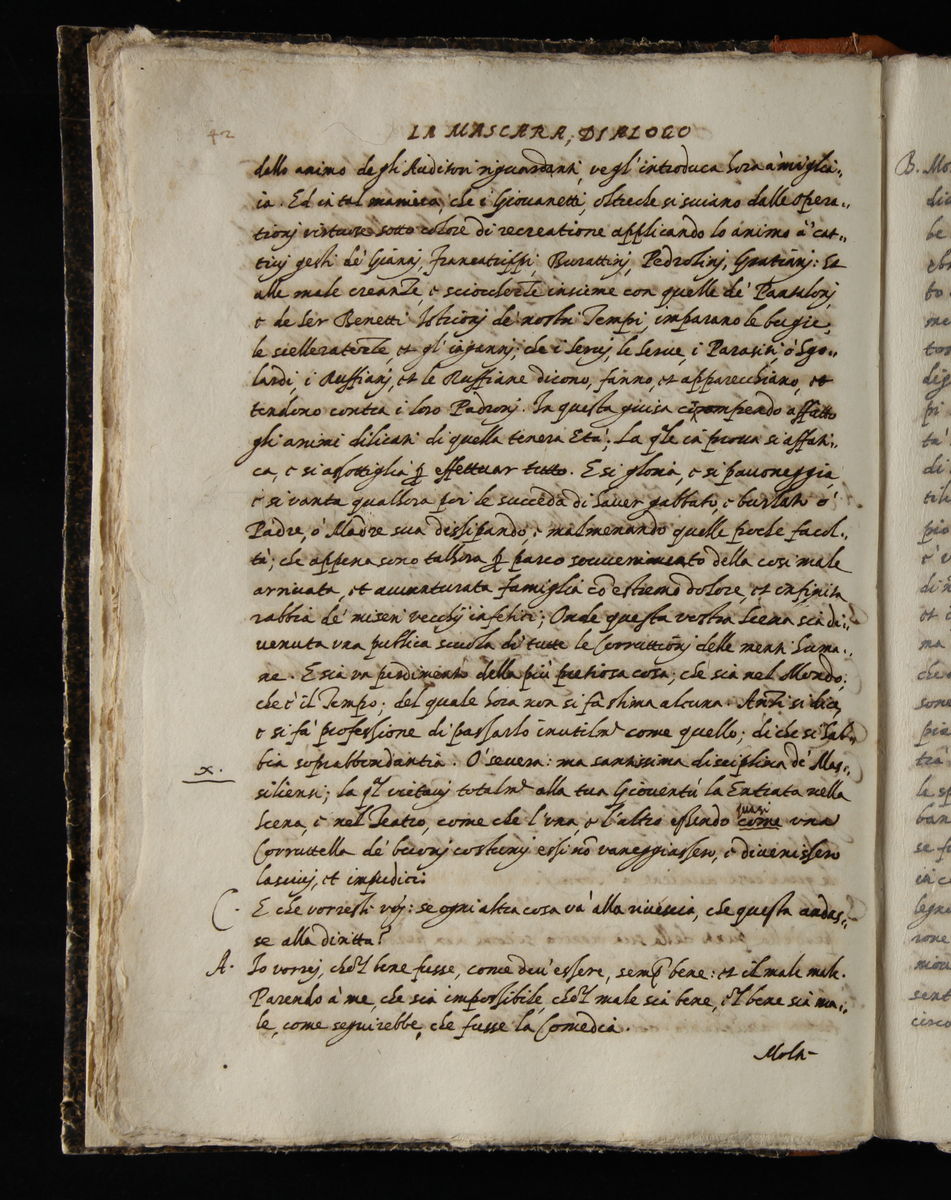 42
LA MASCARA, DIALOGO
dello animo degli Auditori riguardanti, ve gl'introduca hora à miglia-
ia. Ed in tal maniera, che i Giovanetti, oltreche si sviano dalle opera-
tionj virtuose sotto colore di recreatione applicando lo animo à cat-
tivj gesti de' Giannj, Francatrippi, Burattinj, Pedrolinj, Gratianj: Et
alle male creanze, e sciocchezze insieme con quelle de' Pantalonj,
e de Ser Benetti Istrionj de' nostri Tempi, imparano le bugie,
le scelleratezze, et gl'ingannj, che i Servj, le Serve, i Parasiti ò Sgo-
lardi, i Ruffianj, et le Ruffiane dicono, fanno, et apparecchiano, et
tendono contra i loro Padronj. In questa guisa corrompendo affatto
gli animi dilicati di quella tenera Età. La qle in prova si affati-
ca, e si assottiglia p effettuar tutto. E si gloria, e si pavoneggia,
e si vanta quallhora poi le succeda di haver gabbati, e burlati ò
Padre, ò Madre sua dissipando, e malmenando quelle poche facol-
tà; che appena sono talhora p parco sovvenimento della così male
arrivata, et avventurata famiglia cō estremo dolore, et infinita
rabbia de' miseri vecchj infelici; Onde questa vostra scena sia di-
venuta una publica scuola di tutte le Corruttionj delle menti huma-
ne. E sia un perdimento della più pretiosa cosa; che sia nel Mondo;
che è il Tempo; del quale hora nōn si fà stima alcuna. Anzi si dice,
e si fà professione di passarlo inutilmte come quello; di che si hab-
bia soprabbindantia. O' severa: ma santissima disciplina de' Mas-
x.
siliensi; la ql vietavj totalmte alla tua Gioventù la Entrata nella
Scena, e nel Teatro, come che l'una, e l'altro essendo come una
quasi
Corruttella de' buonj costumj essi nō vaneggiassero, e divenissero
lascivj, et impudici:
C. E che vorresti voj: se ogni altra cosa và alla riuescia, che questa andas-
se alla diritta?
A. Io vorrej, che'l bene fusse, come dev'essere, semp bene: et il male male.
Parendo à me, che sia impossibile, che'l male sia bene, e'l bene sia ma-
le, come seguirebbe, che fusse la Comedia.
Molti
B. Mo